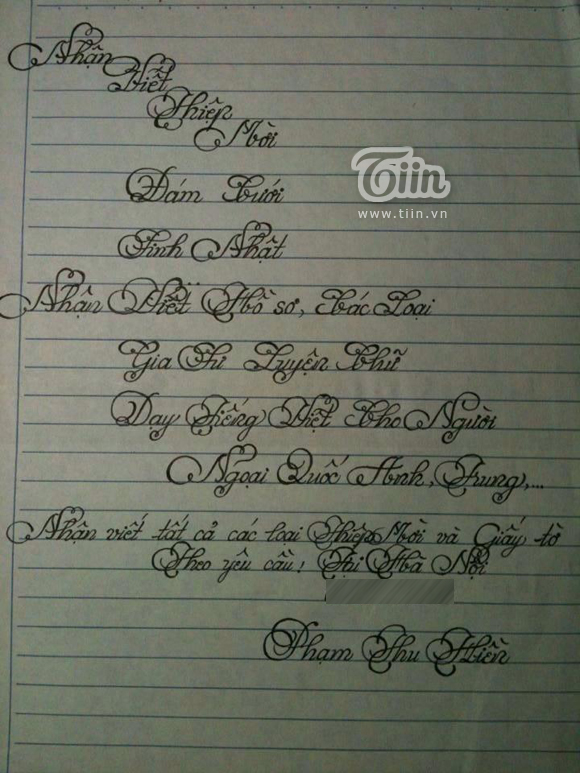 Nhận
Viết
Thiệp
Mời
Tiin
www.tiin.vn
Đám Cưới
Sinh Nhật
Nhận Viết Hồ sơ, Các Loại
Gia Sư Luyện Chữ
Dạy Tiếng Việt Cho Người
Ngoại Quốc Anh, Trung,...
Nhận viết tất cả các loại Thiệp Mời và Giấy tờ
Theo yêu cầu! Tại Hà Nội
Phạm Thu Hiền